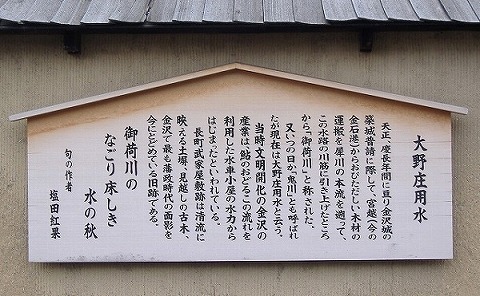 大野庄用水
天正、慶長年間に亘り金沢城の
築城普請に際して、宮越(今の
金石港)からおびただしい木材の
運搬を犀川の本流を遡って、
この水路の川筋に引き上げたところ
から「御荷川」と称された。
又いつの日か「鬼川」とも呼ばれ
たが現在は大野庄用水と云う。
当時文明開化の金沢の
産業は鮎のおどるこの流れを
利用した水車小屋の水力から
はじまったといわれている。
長町武家屋敷跡は清流に
映える土塀、見越しの古木、
金沢で最も藩政時代の面影を
今にとどめている旧跡である。
御荷川の
なごり床しき
水の秋
句の作者
塩田紅果